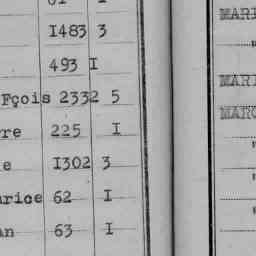 I483 3
493 I
Fçois 2332 5
rre 225 I
e I302 3
urice 62 I
an 63 I
MARI
MARI
MARC